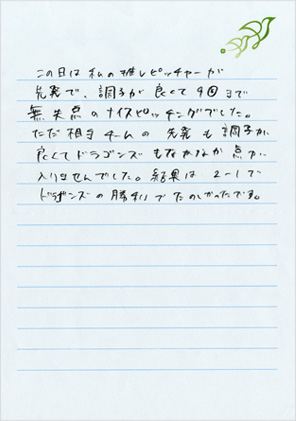 この日は私の推しピッチャーが
先発で、調子が良くて9回まで
無失点のナイスピッチングでした。
ただ相手チームの先発も調子が
良くてドラゴンズもなかなか点が
入りませんでした。結果は2-1で
ドラゴンズの勝利でたのしかったです。